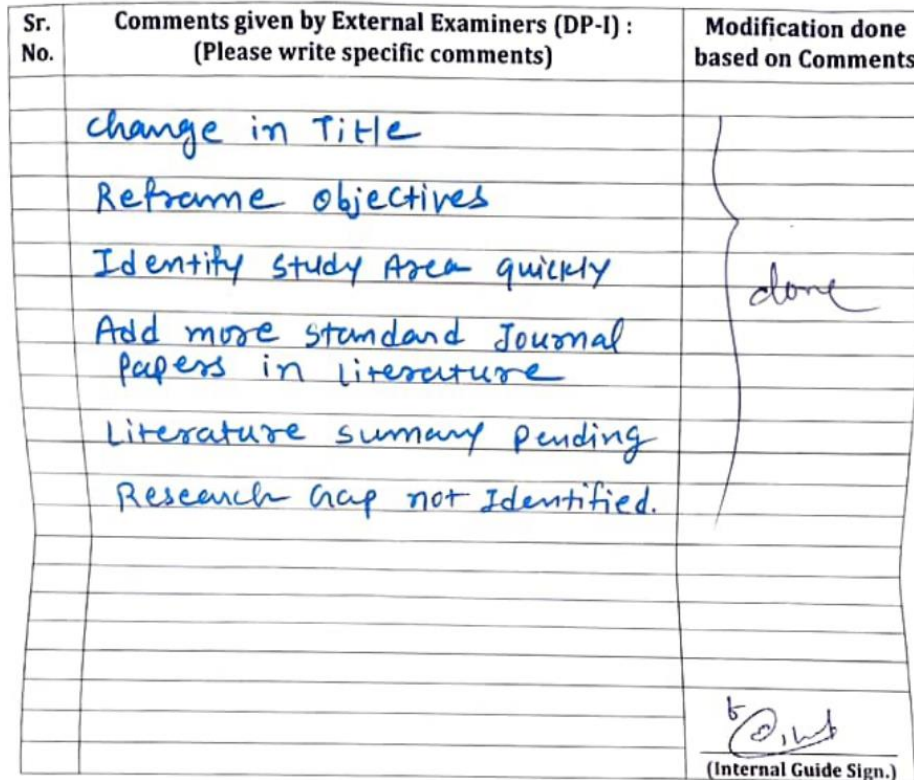 Sr. No.
Comments given by External Examiners (DP-I) :
(Please write specific comments)
Modification done
based on Comments
change in Title
Reframe objectives
Identify study Area quickly
Add more standard Journal
Papers in Literature
Literature sumary Pending
Research Gap not Identified.
done
(Internal Guide Sign.)